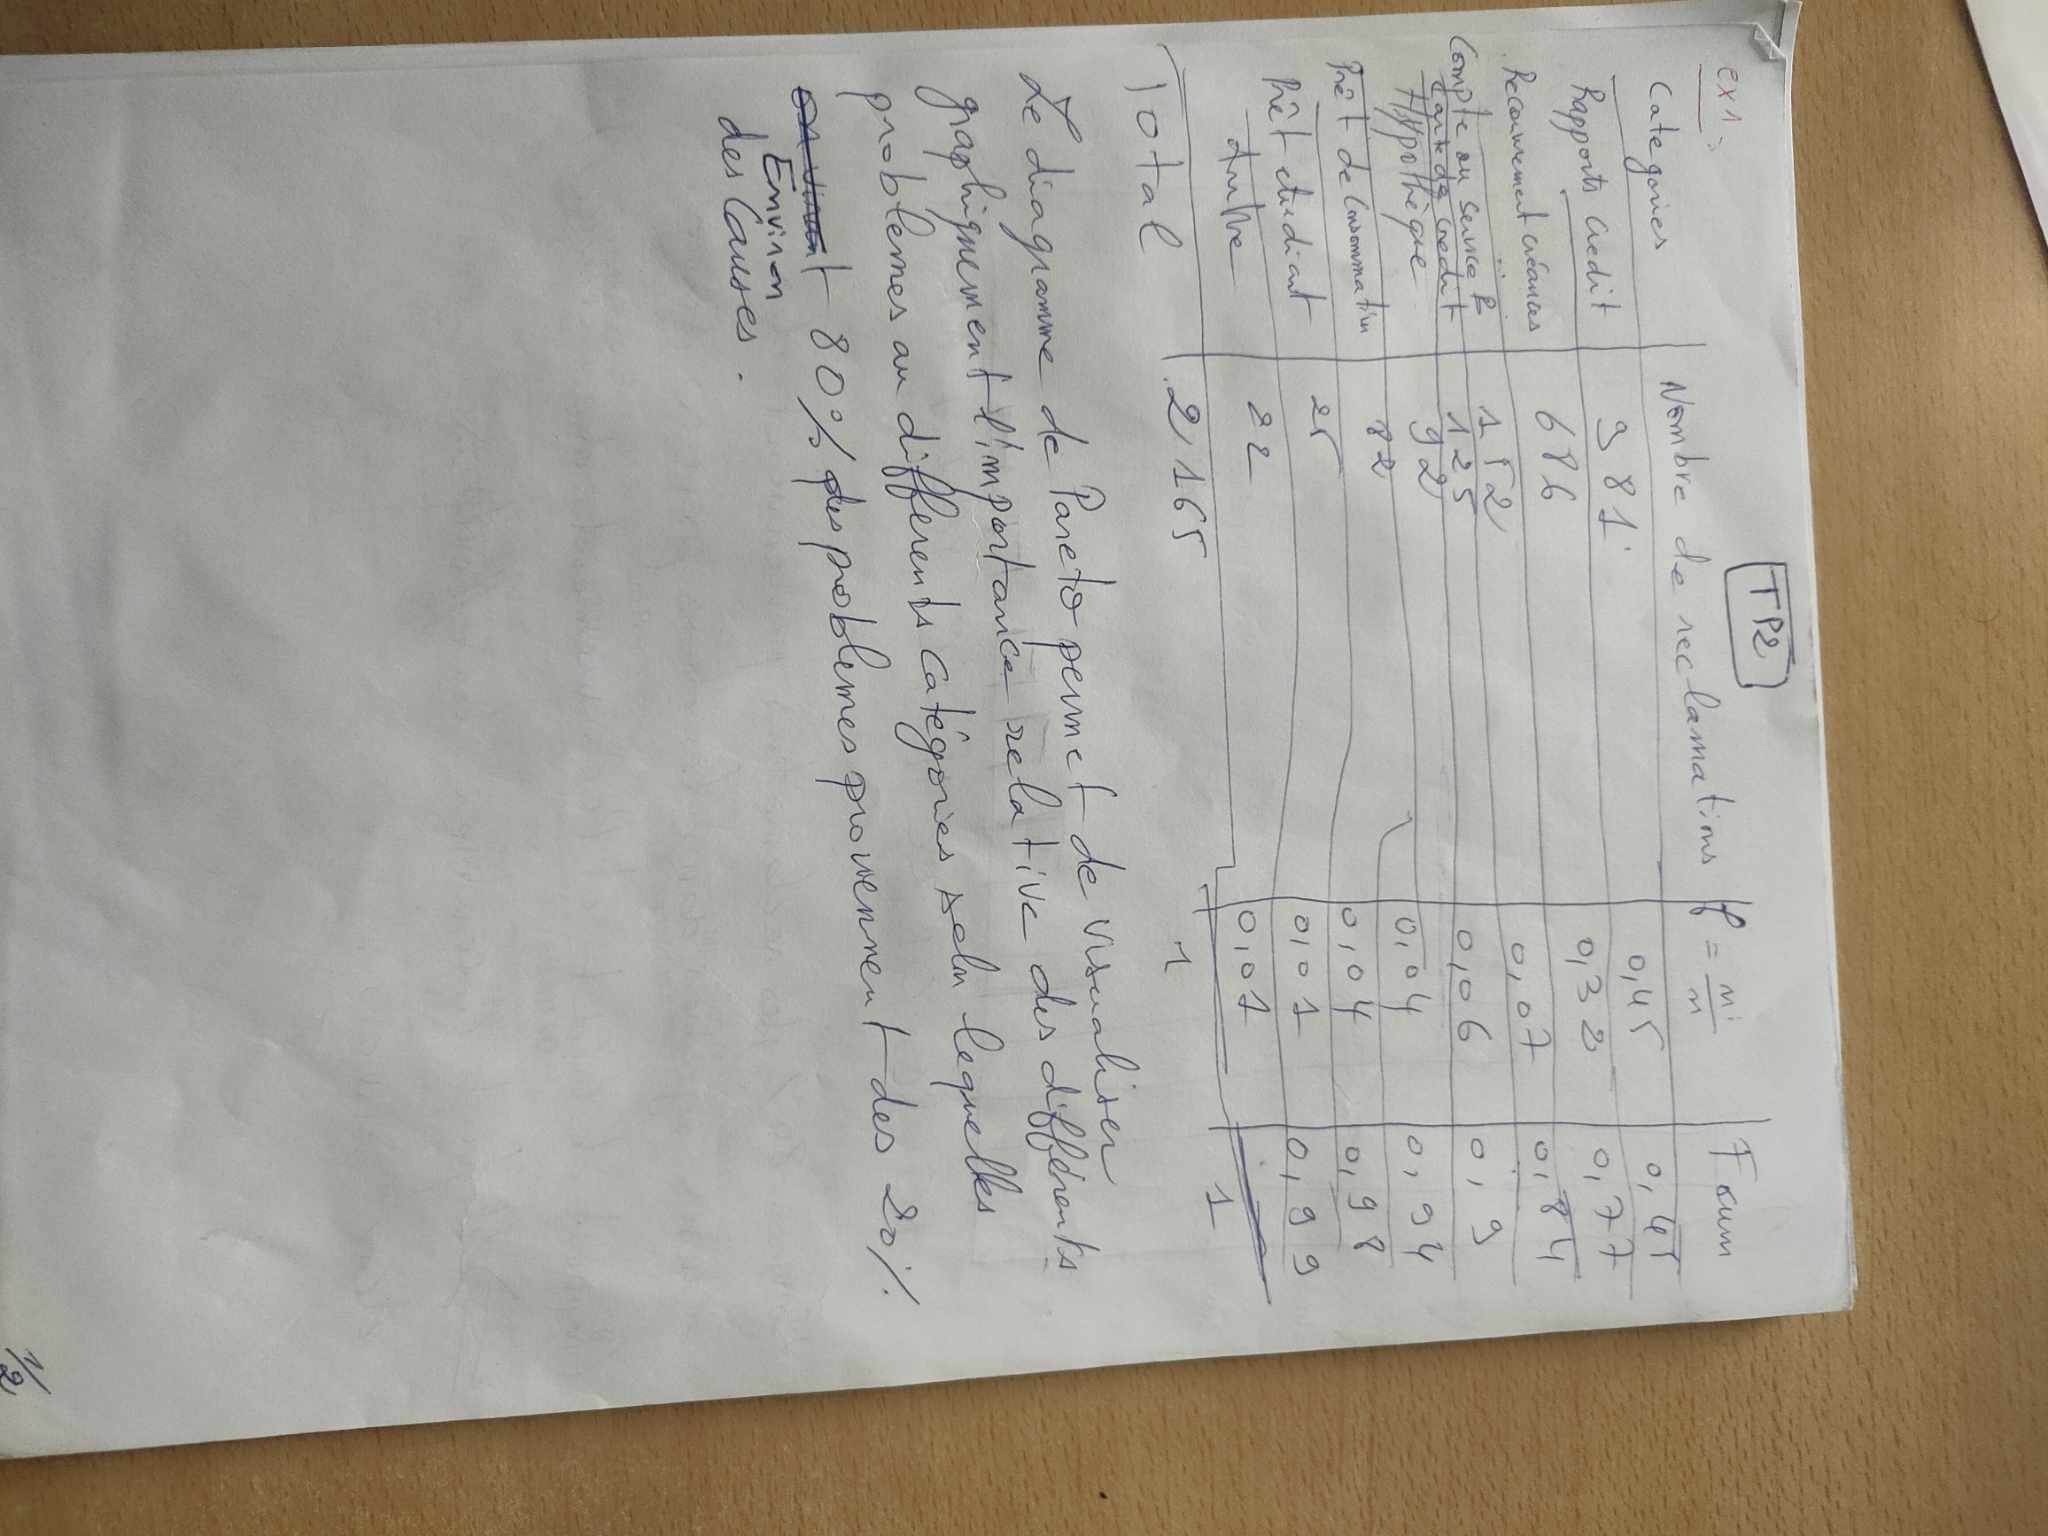 TP2
ex1:
Categories Nombre de reclamations f = ni/n Fcum
Rapports Credit 981 0,45 0,45
Recouvrement créances 686 0,32 0,77
Compte ou service B 152 0,07 0,84
Carte de credit 125 0,06 0,9
Hypothèque 92 0,04 0,94
Prêt de Consommation 82 0,04 0,98
Prêt etudiant 25 0,01 0,99
Autre 22 0,01 1
Total 2165 1
Le diagramme de Pareto permet de visualiser
graphiquement l'importance relative des différents
problemes au differents catégories seln lequelles
80% des problemes proviennent des 20%.
Environ
des Causes.
1/2